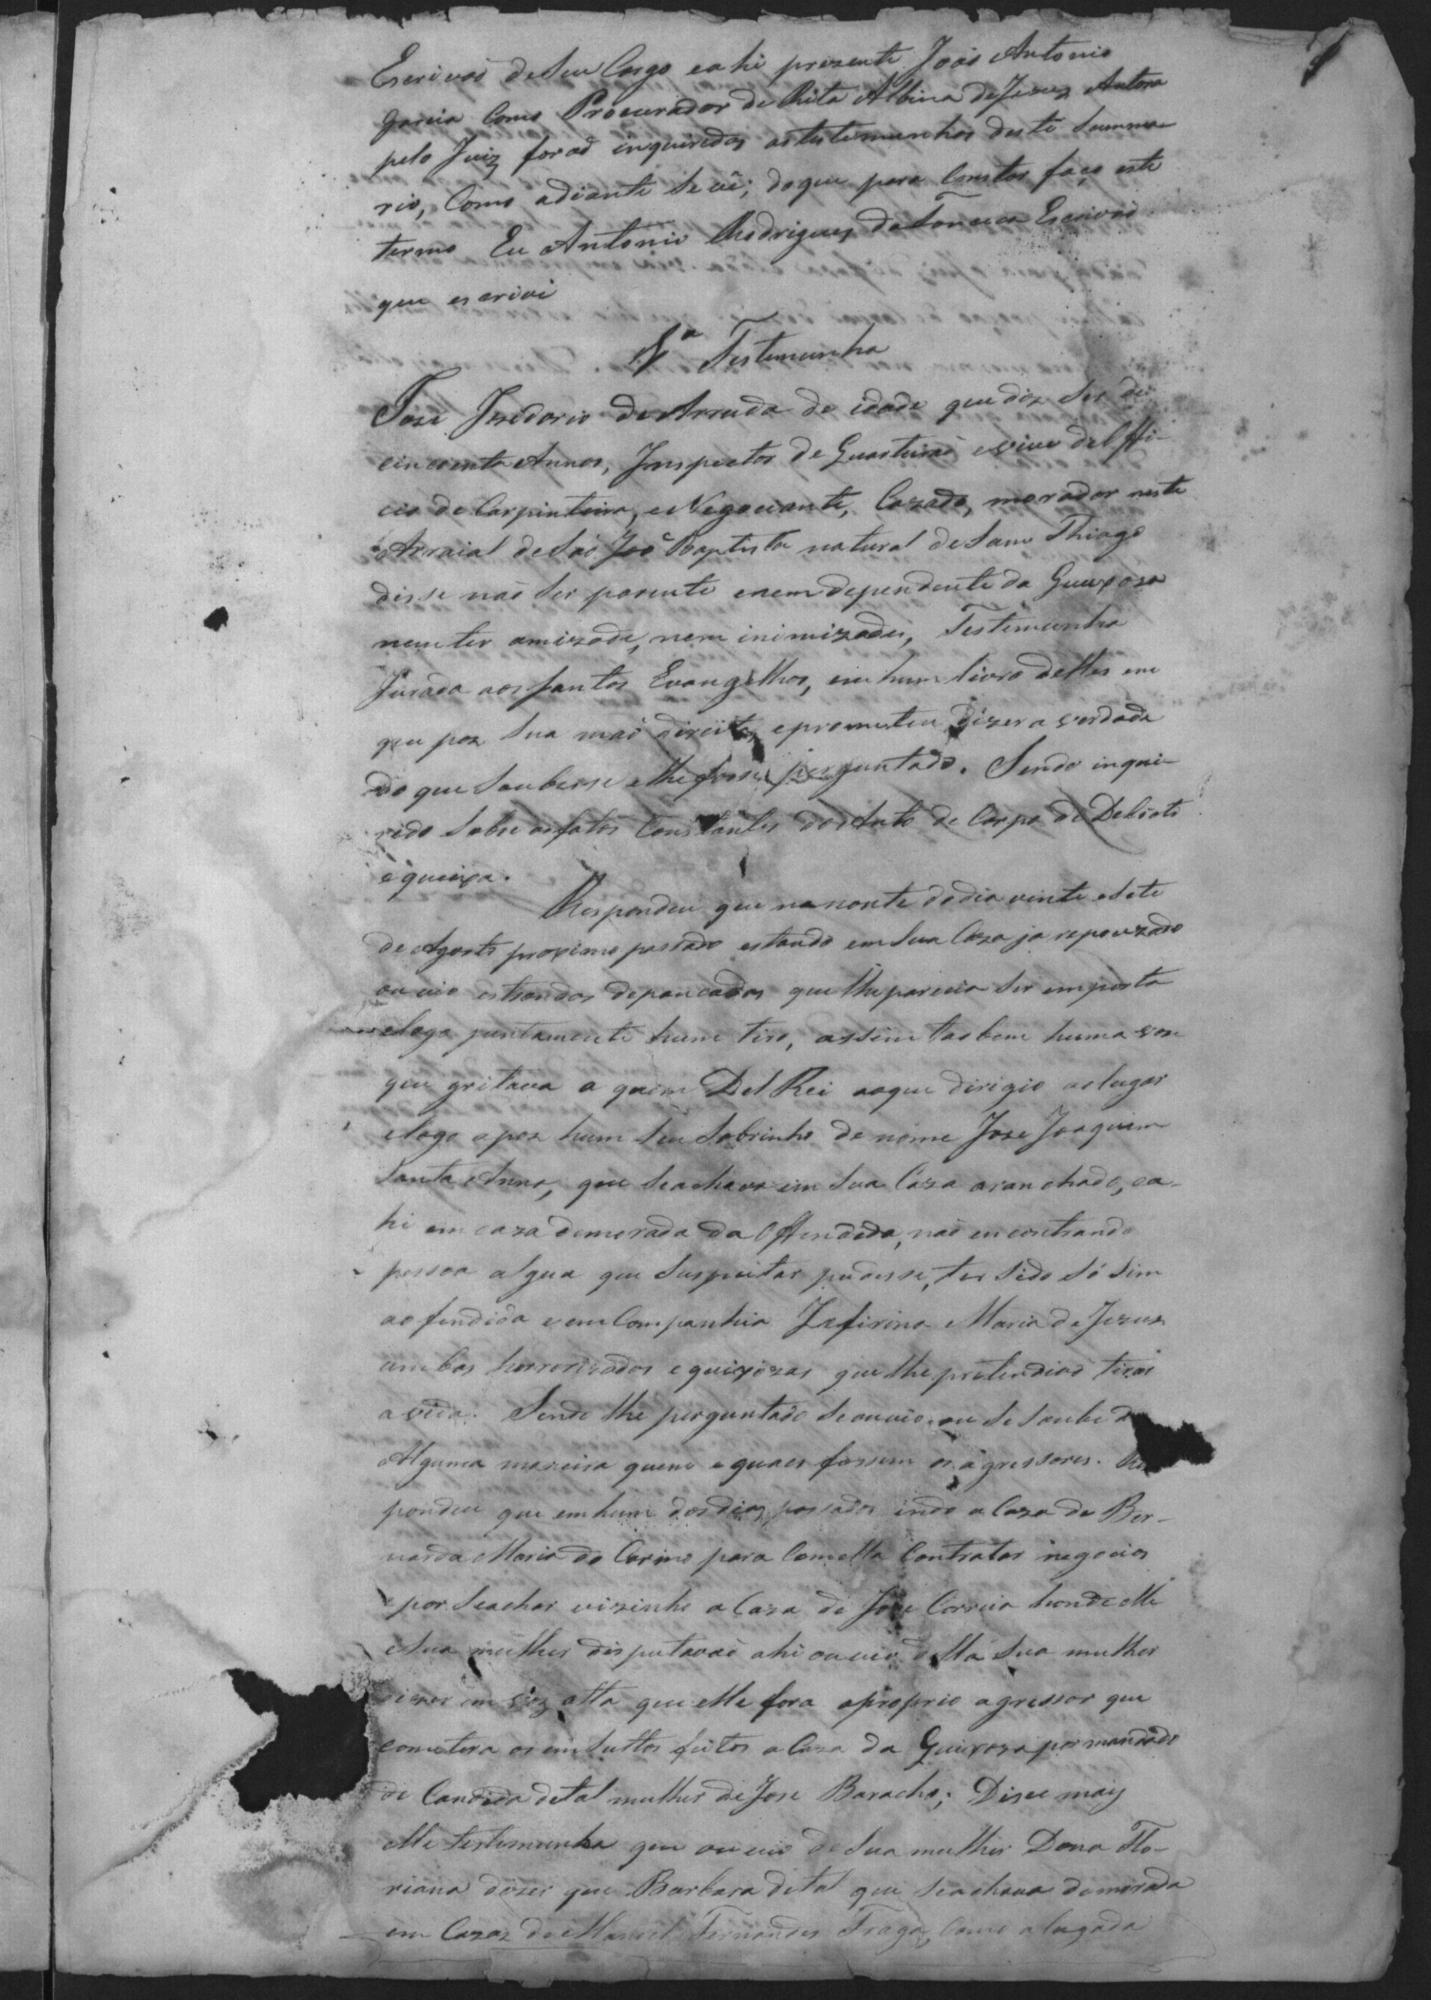 Escrivaõ de Seu Cargo e ahi prezente Joaõ Antonio
Garcia Como Procurador de Rita Albina de Jesus Autora
pelo Juiz foraõ inqueridas as testemunhas deste Summa-
rio, Como adiante Se vê; do que para Constar faço este
termo Eu Antonio Rodrigues da Fonseca Escrivaõ
que escrivi
1ª Testemunha
Jose Izidorio de Arruda de idade que diz Ser de
cincoenta Annos, Inspector de Quarteiraõ e vive de Offi-
cio de Carpinteiro, e Negociante, Cazado, morador neste
Arraial de Saõ Joaõ Baptista natural de Sam Thiago
disse naõ Ser parente e nem dependente da Queixoza
nem ter amizade, nem inimizades, Testemunha
Jurada aos Santos Evangelhos, em hum livro delles em
que poz Sua maõ direita, e prometeu dizer a verdade
do que Soubesse e lhe fosse perguntado. Sendo inque-
rido Sobre os fatos Constantes do Auto de Corpo de Delicto
e queixa.
Respondeu que na noute do dia vinte e Sete
de Agosto proximo passado estando em Sua Caza ja repouzado
ouvio estrondos de pancadas que lhe parecia Ser em porta
e logo juntamente hum tiro, assim taobem huma voz
que gritava a quem Del Rei ao que dirigio ao lugar
e logo apoz hum Seu Sobrinho de nome Jose Joaquim
Santa Anna, que Se achava em Sua Caza aranchado, ea-
hi em caza de morada da Offendida, naõ encontrando
pessoa algua que Suspeitar pudesse, ter Sido Só Sim
a offendida e em Companhia Zefirina Maria de Jezus
ambas horrorizadas e queixozas que lhe pretendiaõ tirar
a vida. Sendo lhe perguntado Se ouvio, ou Se Soube d
Alguma maneira quem e quaes fossem os agressores. Res
pondeu que em hum dos dias passados indo a Caza de Ber-
narda Maria do Carmo para Com ella Contratar negocios
e por Se achar vizinho a Caza de Jose Correia honde elle
e Sua mulher disputavaõ ahi ouvio della Sua mulher
dizer em voz alta que elle fora o proprio agressor que
cometera os insultos feitos a Caza da Queixoza por mandado
de Candida de tal mulher de Jose Baracho; Disse mais
elle testemunha que ouvio de Sua mulher Dona Flo-
riana dizer que Barbara de tal que Se achava de morada
em Cazaz de Manoel Fernandes Fraga, Como alugada